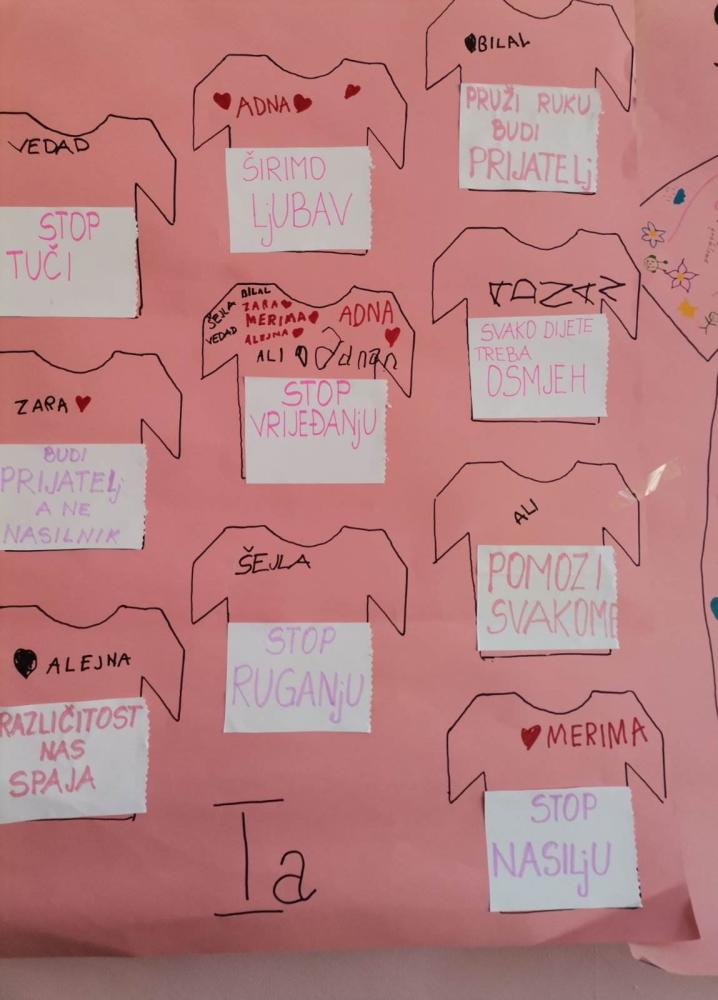 VEDAD
STOP
TUČI
ZARA
BUDI
PRIJATELj
A NE
NASILNIK
ALEJNA
RAZLIČITOST
NAS
SPAJA
ADNA
ŠIRIMO
LjUBAV
BILAL
ŠEJLA
ZARA
MERIMA
VEDAD
ALEJNA
ADNA
ALI
Adnan
STOP
VRIJEĐANjU
ŠEJLA
STOP
RUGANjU
Ia
BILAL
PRUŽI RUKU
BUDI
PRIJATELj
ADNAN
SVAKO DIJETE
TREBA
OSMJEH
ALI
POMOZI
SVAKOME
MERIMA
STOP
NASILjU